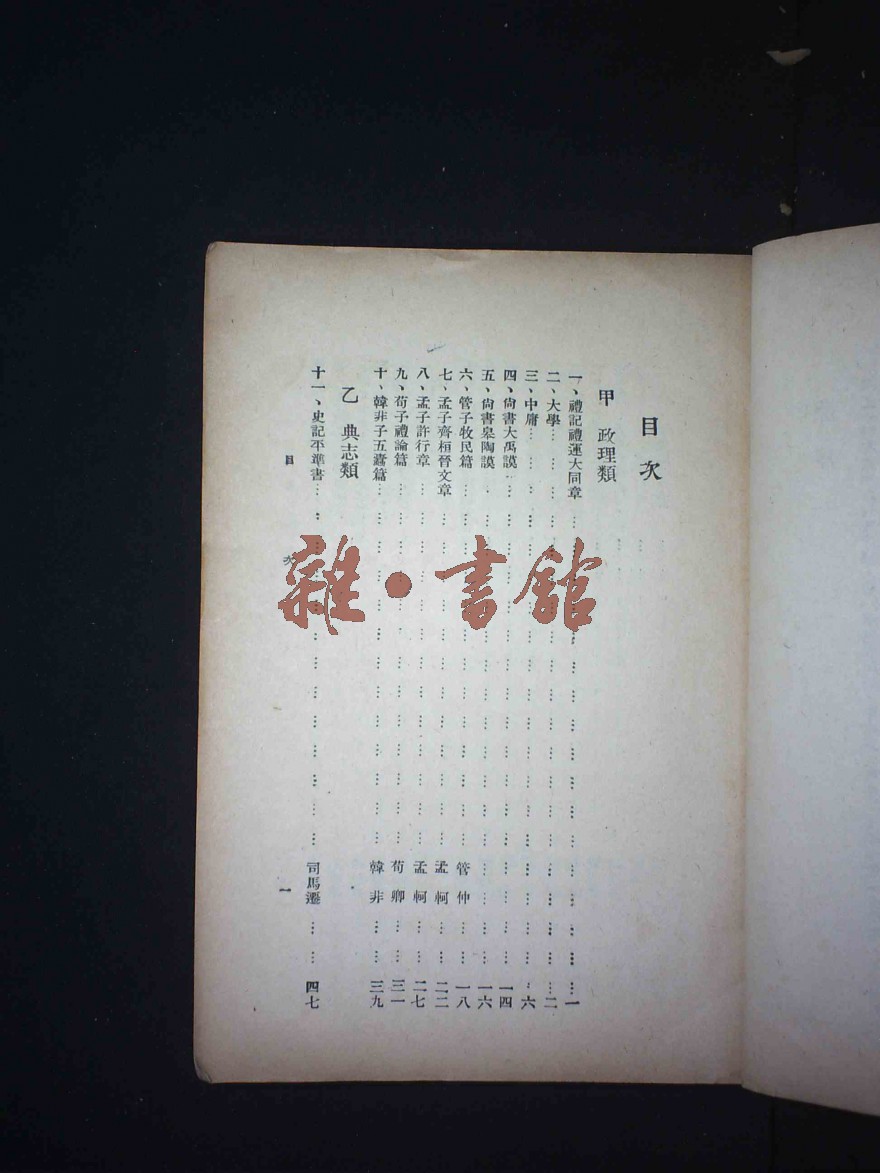 目次
甲 政理類
一、禮記禮運大同章…………一
二、大學…………二
三、中庸…………六
四、尙書大禹謨…………一四
五、尙書皋陶謨…………一六
六、管子牧民篇…………管仲…………一八
七、孟子齊桓晉文章…………孟軻…………二二
八、孟子許行章…………孟軻…………二七
九、荀子禮論篇…………荀卿…………三一
十、韓非子五蠹篇…………韓非…………三九
乙 典志類
十一、史記平準書…………司馬遷…………四七
目次 一
雜·書館